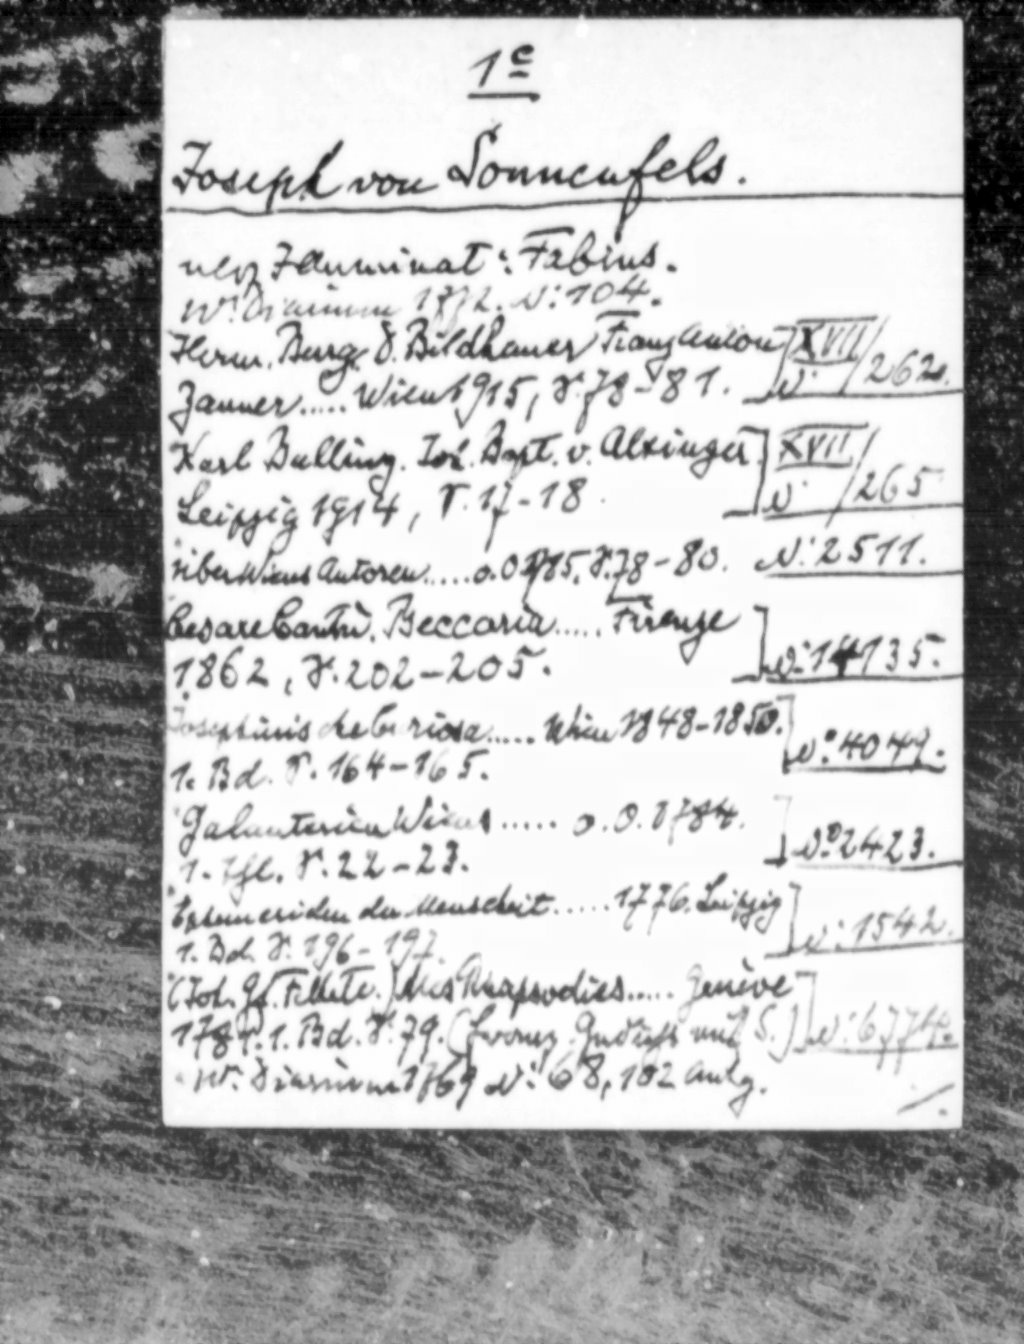 1c
Joseph von Sonnenfels.
Illuminat: Fabius.
W. Diarium 1772. N: 104.
Herm. Burg. D. Bildhauer Franz Anton XVII
Zauner..... Wien 1915, S. 78-81. N. /262.
Karl Bulling. Joh. Bapt. v. Alxinger XVII
Leipzig 1914, S. 17-18. N. /265
über Wiens Autoren..... o.O. 1785, S. 78-80. N: 2511.
Cesare Cantù. Beccaria..... Firenze
1862, S. 202-205. N: 14135.
Josephinische Curiosa..... Wien 1848-1850.
1. Bd. S. 164-165. N: 4049.
Galanterien Wiens..... o.O. 1784.
1. Thl. S. 22-23. N: 2423.
Ephemeriden der Menscheit..... 1776. Leipzig
1. Bd. S. 196-197. N: 1542.
(Joh. Mes Rhapsodies..... Genève
1784. 1. Bd. S. 79. S.) N: 6774.
W. Diarium 1769 N: 68, 102